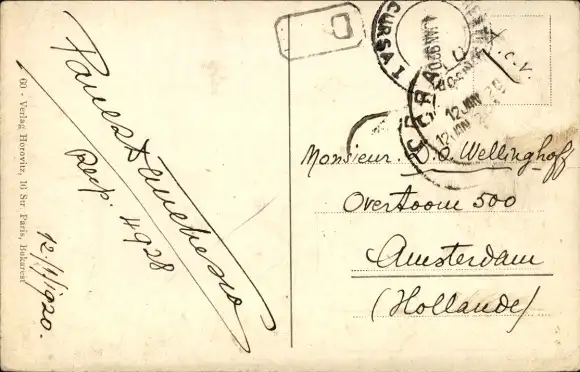 60 - Verlag Horovitz, 16 Str. Paris, Bukarest
Resp. 4928
12/I/1920.
D
CURSA I
12 JAN 20
12 JAN
T.C.V.
Monsieur. D. O. Wellinghoff
Overtoom 500
Amsterdam
(Hollande)